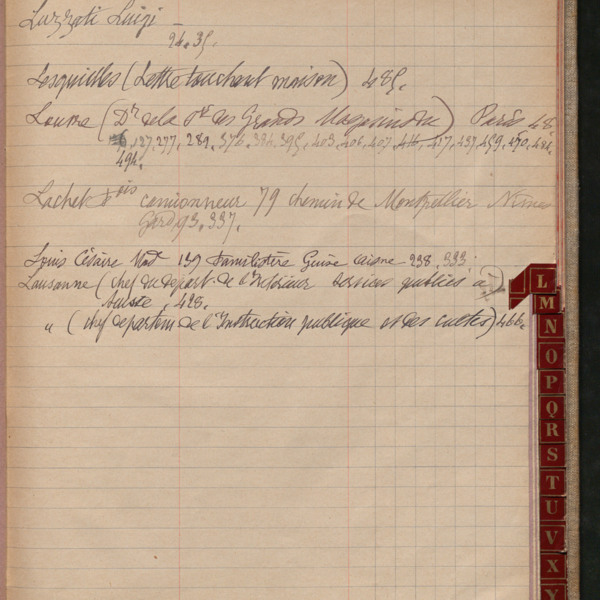 Luzzati Luigi –
24. 35.
Lesquilles (Lettre touchant maison) 485.
Louvre (Dr de la Sté des Grands Magasins du) Paris 48.
127, 277, 281, 376. 384. 395, 403. 406. 407. 416, 417, 437, 459, 470, 481.
494.
Lachet camionneur 79 chemin de Montpellier Nimes
Gard 93. 337.
Louis Césaire Mad 159 Familistère Guise Aisne 238. 333.
Lausanne (chef du départ. de l'Intérieur Service publics à)
Suisse, 428.
" (chef départem de l'Instruction publique et des cultes) 466.
L
M
N
O
P
Q
R
S
T
U
V
X
Y